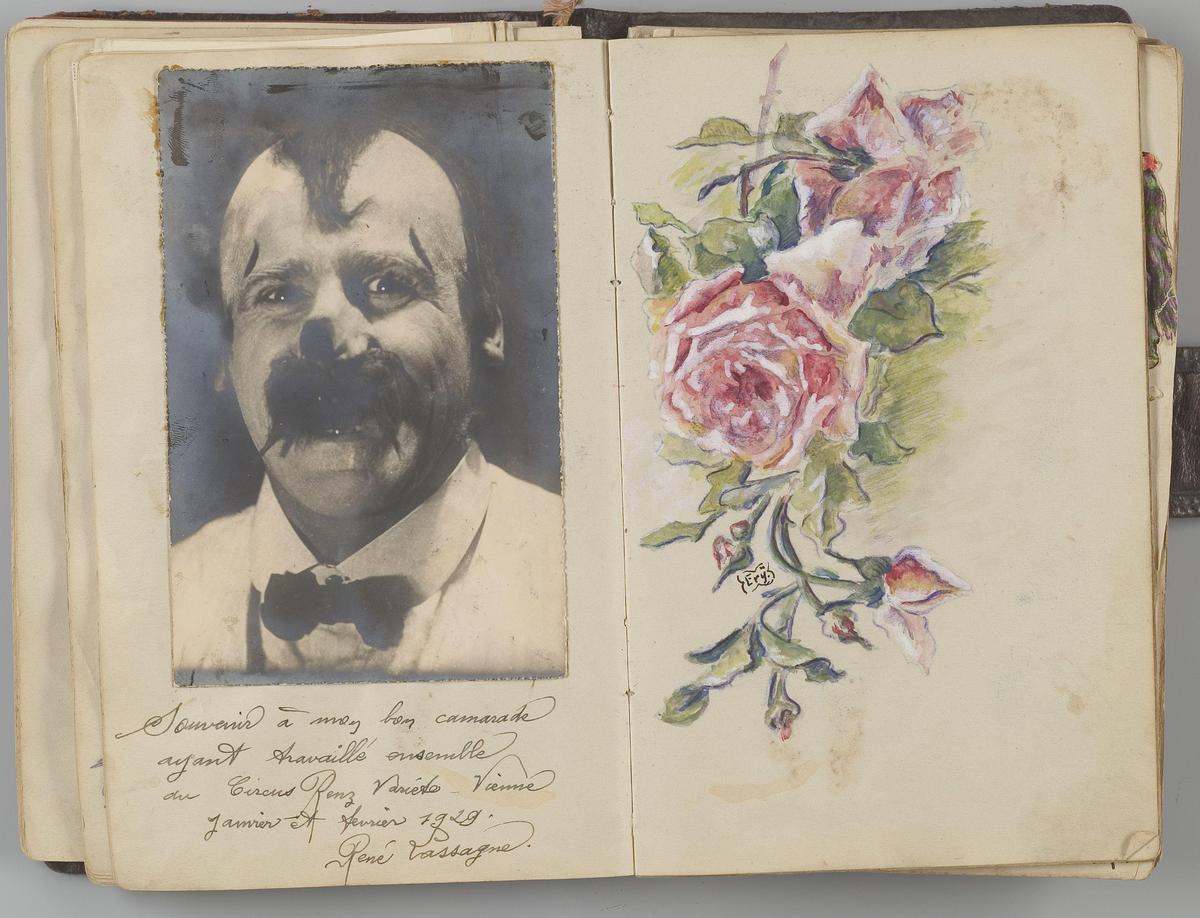 Souvenir à mon bon camarade
ayant travaillé ensemble
au Circus Renz Varieté - Vienne
janvier et fevrier 1929.
René Lassagne.
Ery.